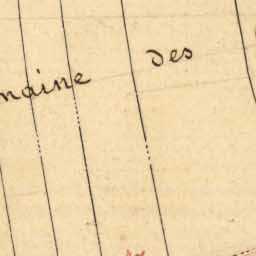 maine des